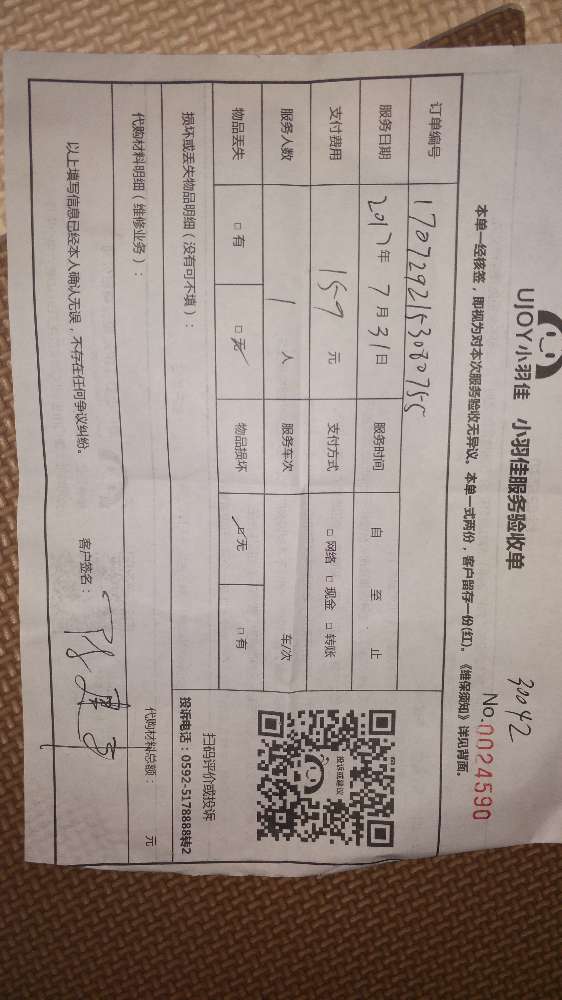 UJOY小羽佳 小羽佳服务验收单
30042
No.0024590
本单一经核签，即视为对本次服务验收无异议。本单一式两份，客户留存一份(红)。《维保须知》详见背面。
订单编号 1707292153080755
服务日期 2017年 7月 31日 服务时间 自 至 止
支付费用 159 元 支付方式 □ 网络 □ 现金 □ 转账
服务人数 1 人 服务车次 车/次
物品丢失 □ 有 □ 无 物品损坏 □ 无 □ 有
投诉或建议
扫码评价或投诉
投诉电话：0592-5178888转2
损坏或丢失物品明细（没有可不填）：
代购材料明细（维修业务）： 代购材料总额： 元
以上填写信息已经本人确认无误，不存在任何争议纠纷。 客户签名：